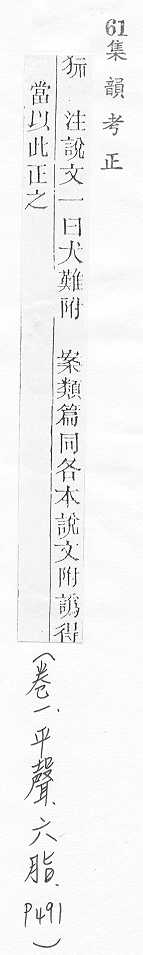 61集韻考正
㹻 注說文一曰犬難附 案類篇同各本說文附譌得
當以此正之
（卷一、平聲、六脂、P491）